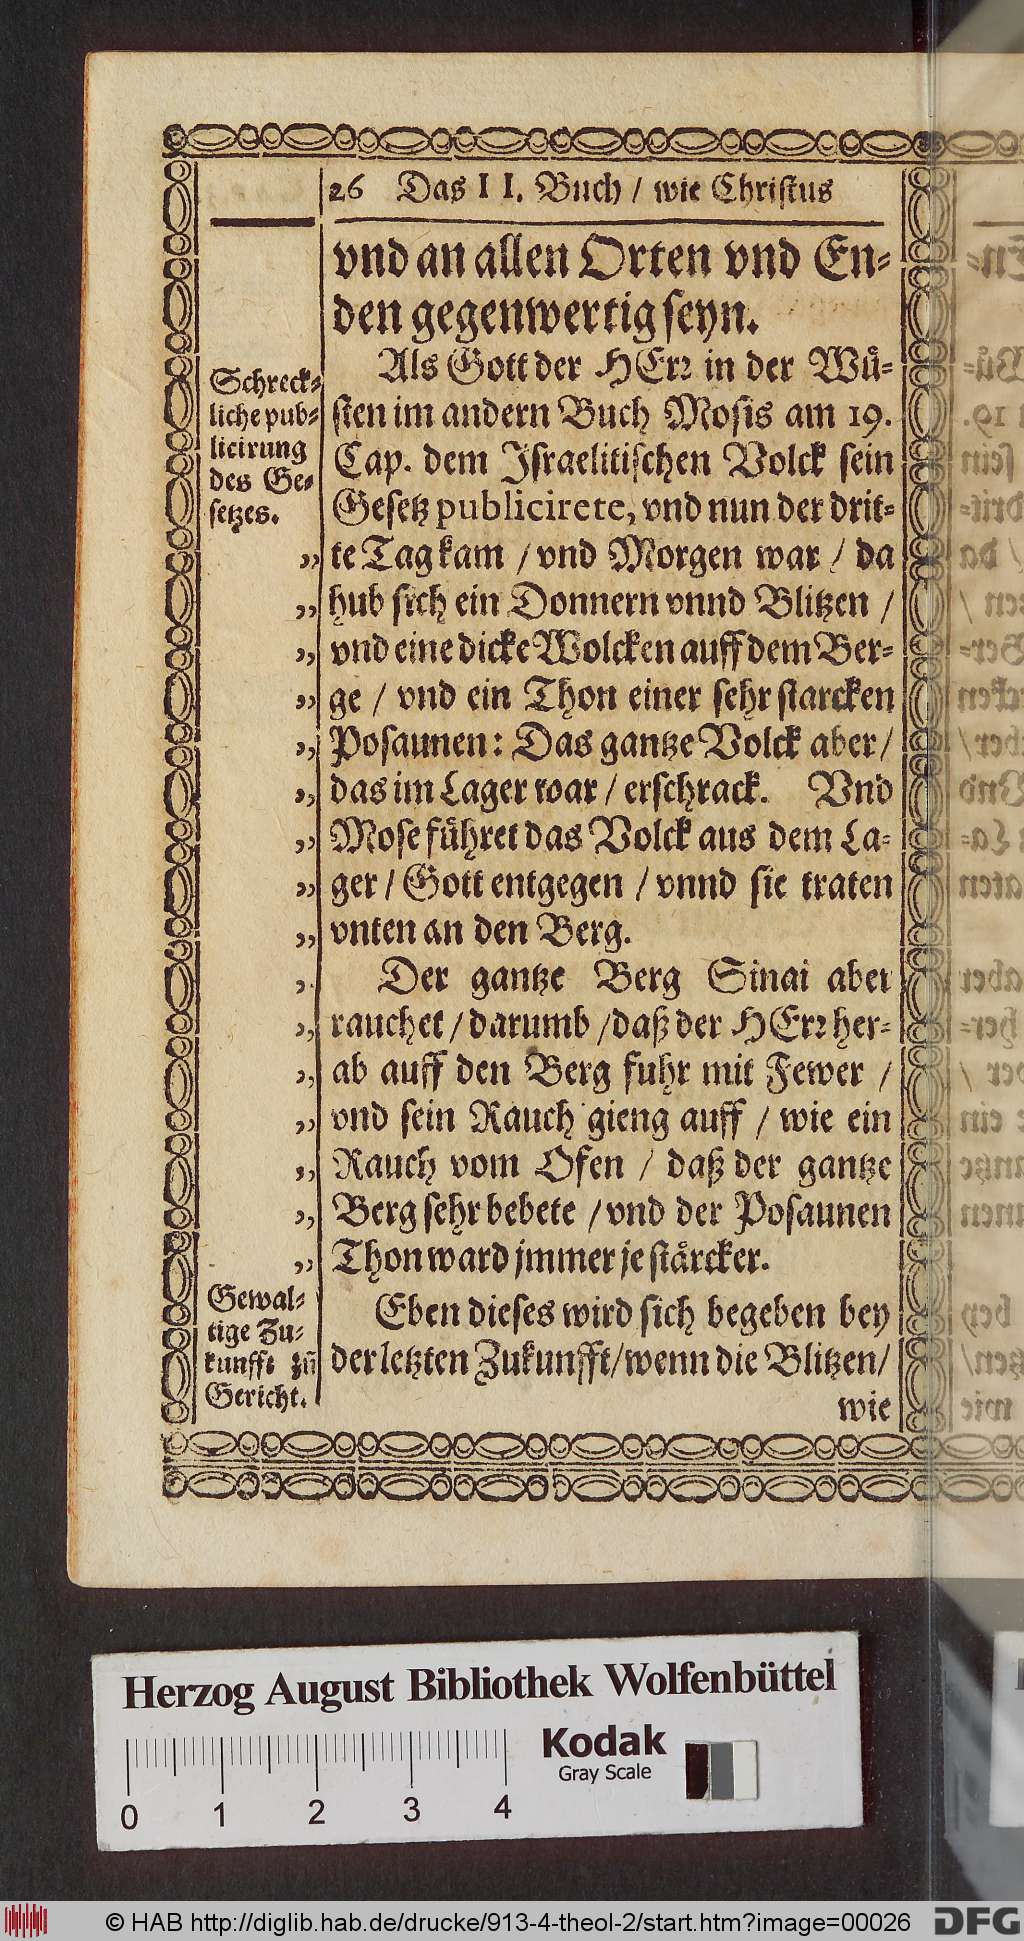 26 Das II. Buch / wie Christus
vnd an allen Orten vnd En-
den gegenwertig seyn.
Als Gott der HErr in der Wuͤ-
sten im andern Buch Mosis am 19.
Cap. dem Israelitischen Volck sein
Gesetz publicirete, vnd nun der drit-
te Tag kam / vnd Morgen war / da
hub sich ein Donnern vnnd Blitzen /
vnd eine dicke Wolcken auff dem Ber-
ge / vnd ein Thon einer sehr starcken
Posaunen: Das gantze Volck aber /
das im Lager war / erschrack. Vnd
Mose fuͤhret das Volck aus dem La-
ger / Gott entgegen / vnnd sie traten
vnten an den Berg.
Der gantze Berg Sinai aber
rauchet / darumb / daß der HErr her-
ab auff den Berg fuhr mit Fewer /
vnd sein Rauch gieng auff / wie ein
Rauch vom Ofen / daß der gantze
Berg sehr bebete / vnd der Posaunen
Thon ward jmmer je staͤrcker.
Eben dieses wird sich begeben bey
der letzten Zukunfft / wenn die Blitzen /
wie
Schreck-
liche pub-
licirung
des Ge-
setzes.
Gewal-
tige Zu-
kunfft zū
Gericht.
Herzog August Bibliothek Wolfenbüttel
Kodak
Gray Scale
0 1 2 3 4
© HAB http://diglib.hab.de/drucke/913-4-theol-2/start.htm?image=00026
DFG